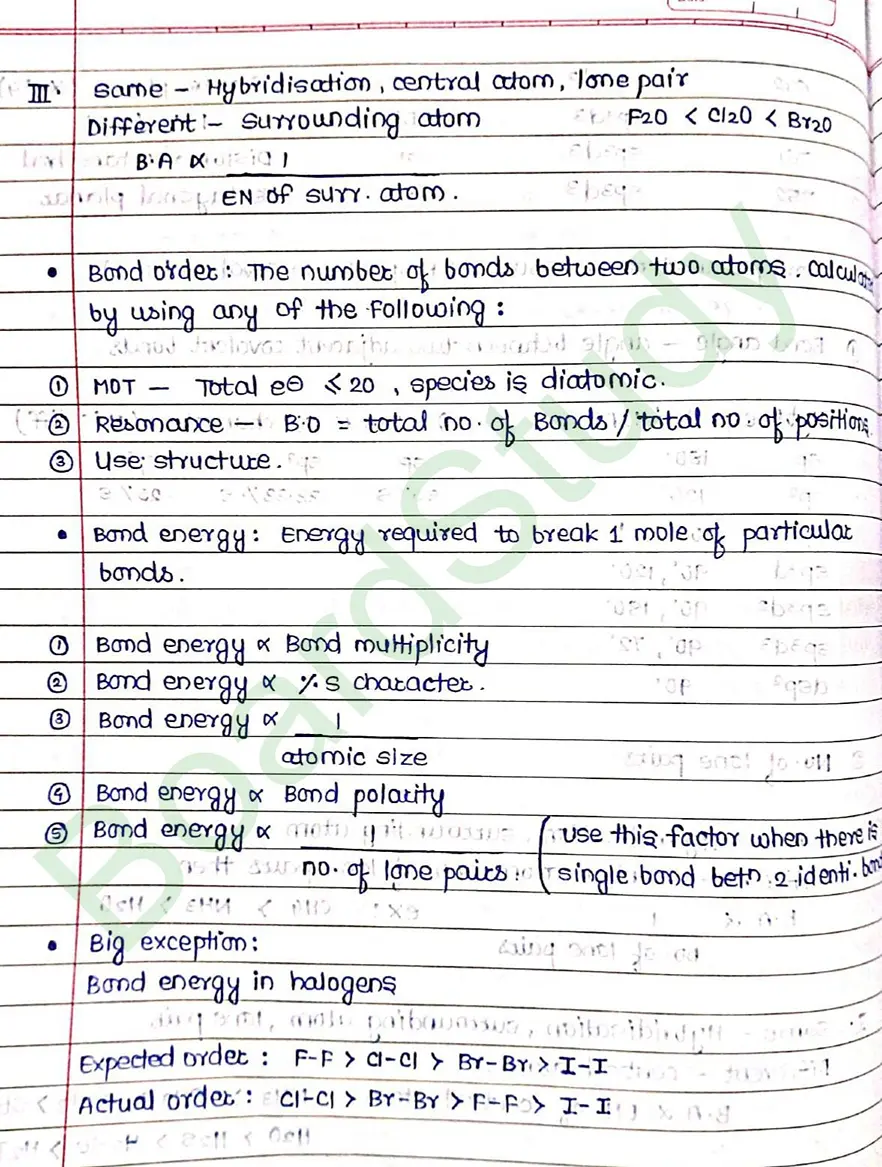 III. Same - Hybridisation, central atom, lone pair
Different :- Surrounding atom F2O < Cl2O < Br2O
B.A ∝ 1
EN of surr. atom.
• Bond order : The number of bonds between two atoms. Calculate
by using any of the following :
① MOT — Total e⊖ ≤ 20 , species is diatomic.
② Resonance — B.O = total no. of Bonds / total no. of positions
③ Use structure.
• Bond energy : Energy required to break 1 mole of particular
bonds.
① Bond energy ∝ Bond multiplicity
② Bond energy ∝ % S character.
③ Bond energy ∝ 1
atomic size
④ Bond energy ∝ Bond polarity
⑤ Bond energy ∝ 1 (use this factor when there is
no. of lone pairs. single bond betn 2 identi. bond
• Big exception :
Bond energy in halogens
Expected order : F-F > Cl-Cl > Br-Br > I-I
Actual order : Cl-Cl > Br-Br > F-F > I-I
BoardStudy